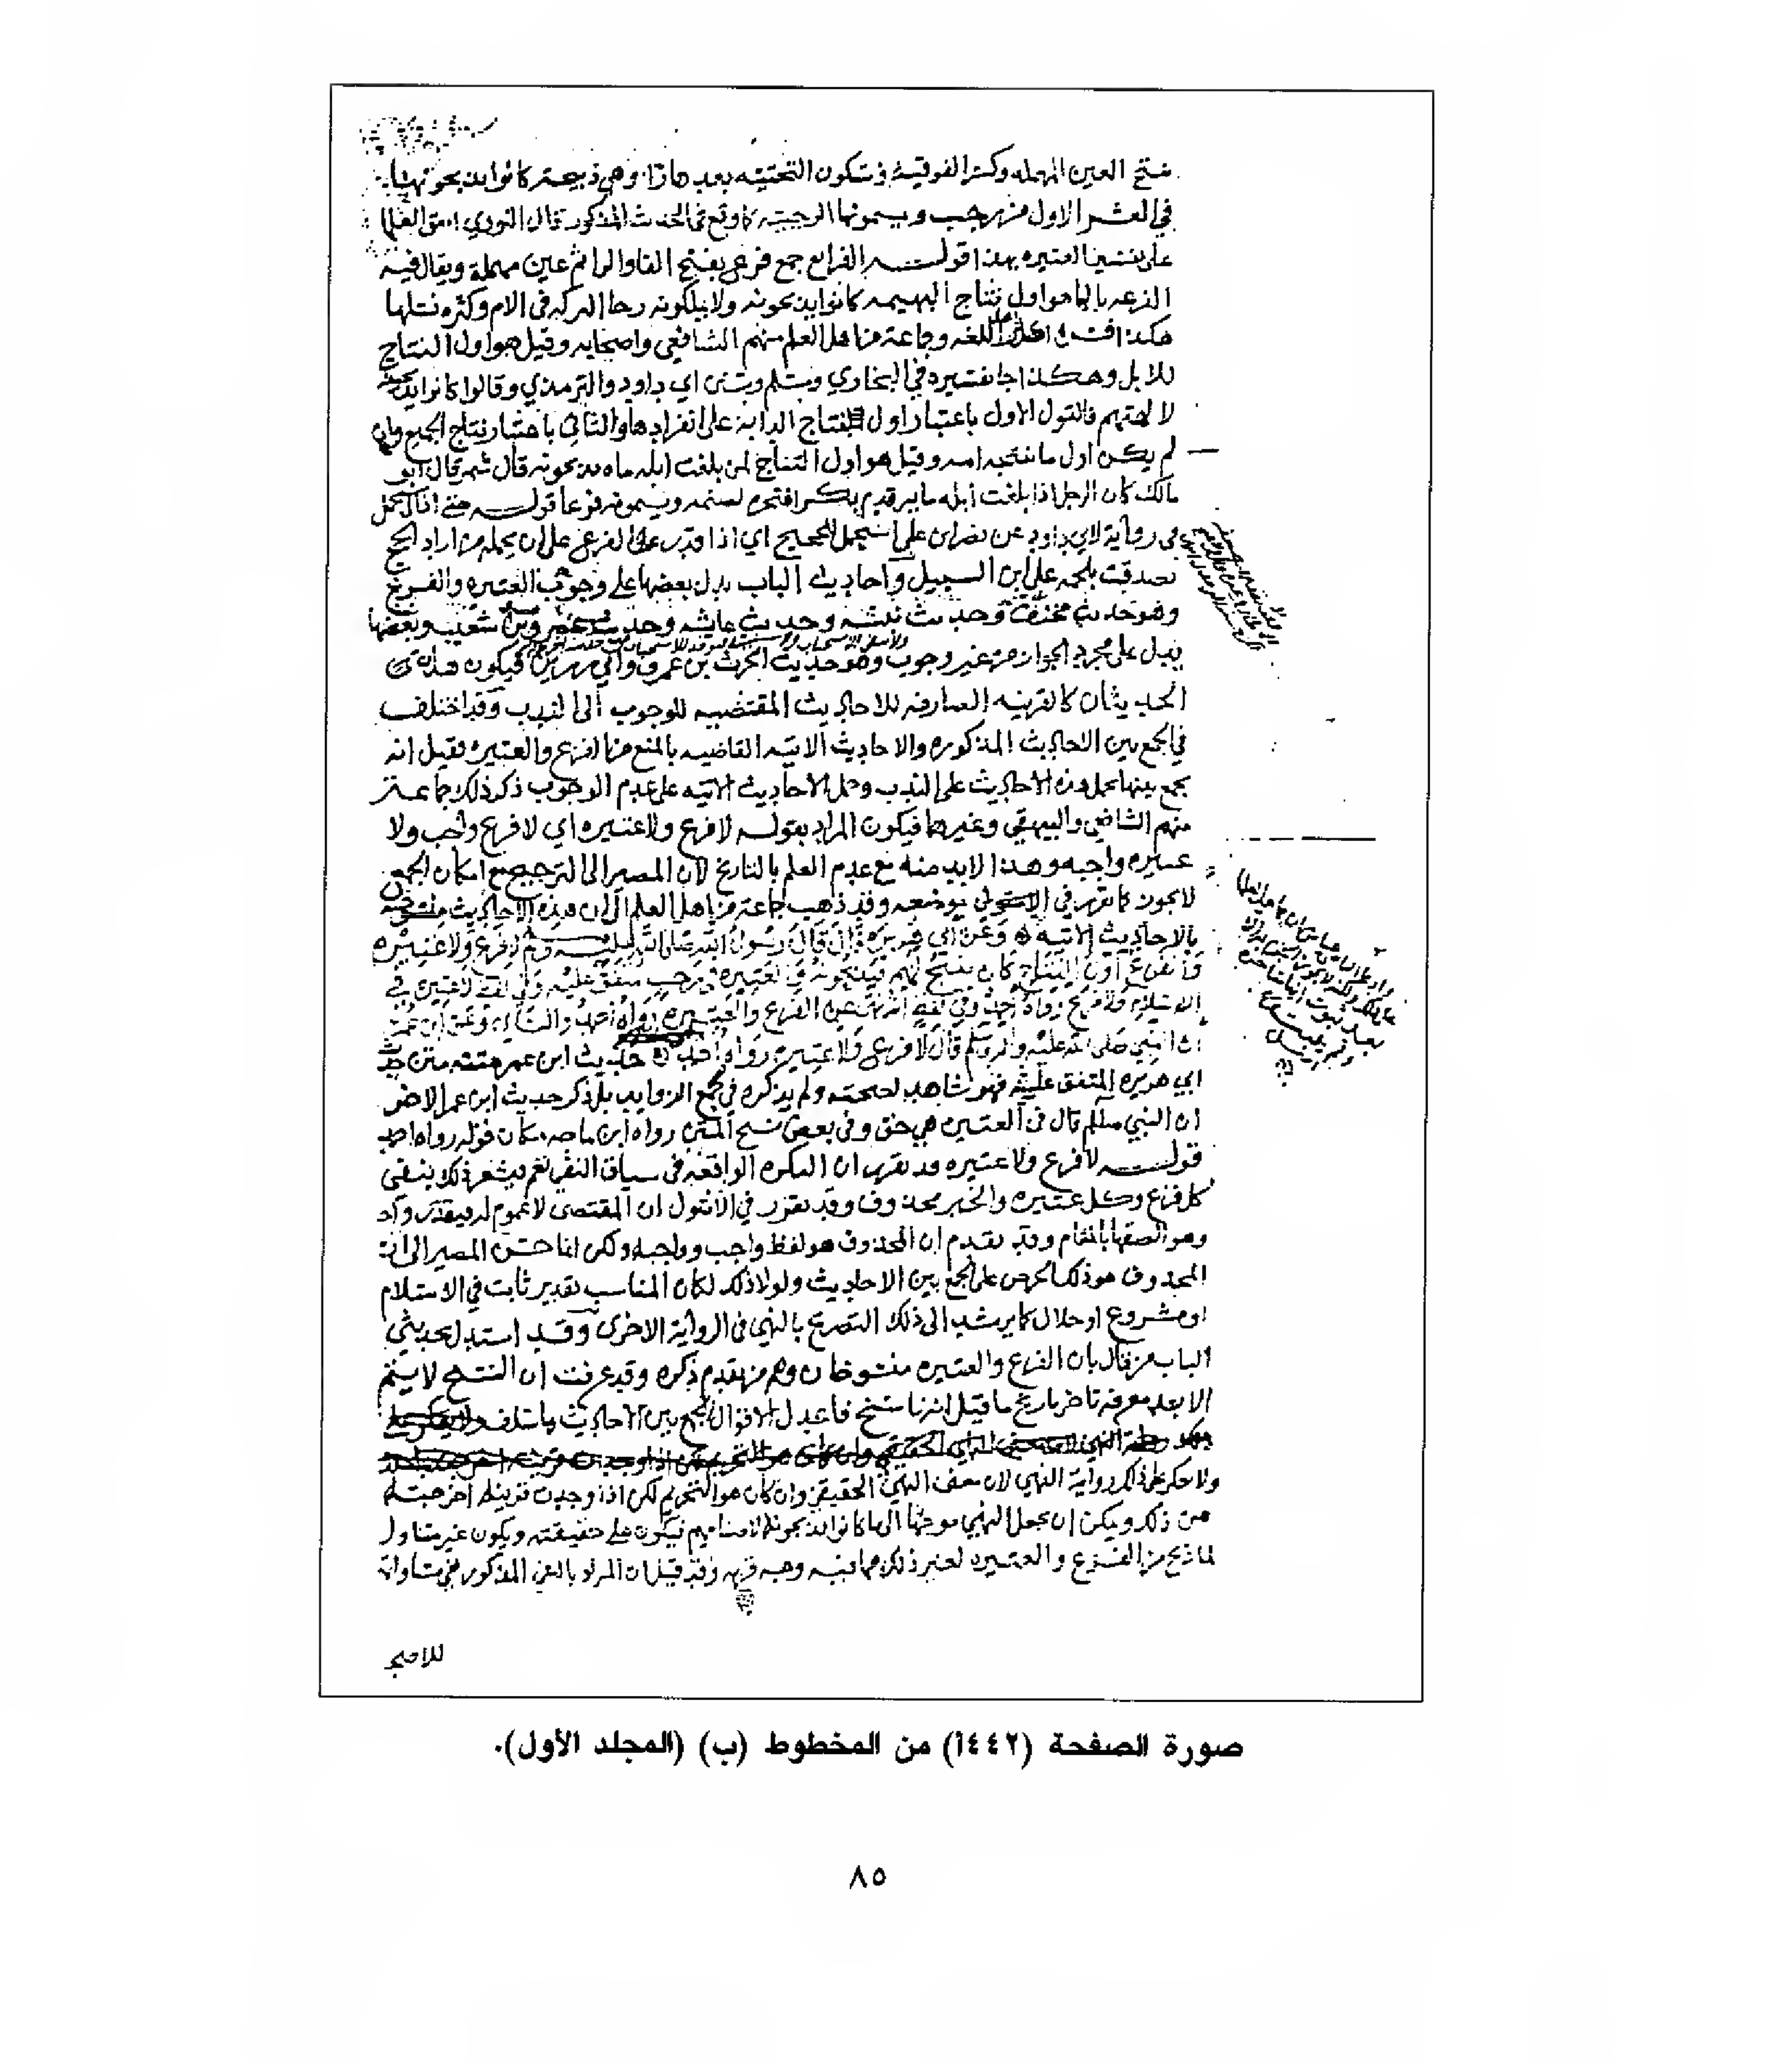 بفتح العين المهمله وكسر الفوقية وسكون التحتيه بعدها را وهي ذبيحة كانوا يذبحونها
في العشر الاول من رجب ويسمونها الرجبية كما وقع في الحديث المذكور قال النووي اتفق العلما
على تفسير العتيره بهذا قوله الفرايع جمع فرع بفتح الفا والرا ثم عين مهملة ويقال فيه
الفرعه بالها هو اول نتاج البهيمه كانوا يذبحونه ولا يملكونه رجا البركه في الام وكثره نسلها
هكذا فسره اكثر اهل اللغه وجماعة من اهل العلم منهم الشافعي واصحابه وقيل هو اول النتاج
للابل وهكذا جا تفسيره في البخاري ومسلم وسنن ابي داود والترمذي وقالوا كانوا يذبحونه
لالهتهم فالقول الاول باعتبار اول نتاج الدابة على انفرادها والثاني باعتبار نتاج الجميع وان
لم يكن اول ما تنتجه امه وقيل هو اول النتاج لمن بلغت ابله مايه يذبحونه قال شمر قال ابو
مالك كان الرجل اذا بلغت ابله مايه قدم بكرا فنحره لصنمه ويسمونه فرعا قوله حتى اذا استحمل
في رواية لابي داود عن نصر بن علي استحمل للحجيج اي اذا قدر الفرع على ان يحمله من اراد الحج
تصدقت بلحمه على ابن السبيل واحاديث الباب يدل بعضها على وجوب العتيره والفرع
وهو حديث مخنف وحديث نبيشه وحديث عايشه وحديث عمرو بن شعيب وبعضها
يدل على مجرد الجواز من غير وجوب وهو حديث الحرث بن عمرو وابي رزين فيكون هذان
الحديثان كالقرينه الصارفه للاحاديث المقتضيه للوجوب الى الندب وقد اختلف
في الجمع بين الاحاديث المذكوره والاحاديث الاتيه القاضيه بالمنع من الفرع والعتيره فقيل انه
يجمع بينها بحمل هذه الاحاديث على الندب وحمل الاحاديث الاتيه على عدم الوجوب ذكر ذلك جماعة
منهم الشافعي والبيهقي وغيرهما فيكون المراد بقوله لا فرع ولا عتيره اي لا فرع واجب ولا
عتيره واجبه وهذا لا بد منه مع عدم العلم بالتاريخ لان المصير الى الترجيح مع امكان الجمع
لا يجوز كما تقرر في الاصول في موضعه وقد ذهب جماعة من اهل العلم الى ان هذه الاحاديث منسوخه
بالاحاديث الاتيه وعن ابي هريره قال قال رسول الله صلى الله عليه وسلم لا فرع ولا عتيره
والفرع اول النتاج كان ينتج لهم فيذبحونه والعتيره في رجب متفق عليه وفي لفظ لا عتيره في
الاسلام ولا فرع رواه احمد وفي لفظ انه نهى عن الفرع والعتيره رواه احمد والنسائي وعن ابن عمر
ان النبي صلى الله عليه واله وسلم قال لا فرع ولا عتيره رواه احمد حديث ابن عمر متنه متن حديث
ابي هريره المتفق عليه فهو شاهد لصحته ولم يذكره في مجمع الزوايد بل ذكر حديث ابن عمر الاخر
ان النبي صللم قال في العتيره هي حق وفي بعض نسخ المتن رواه ابن ماجه مكان قوله رواه احمد
قوله لا فرع ولا عتيره قد تقرر ان النكره الواقعة في سياق النفي تعم فيشعر ذلك بنفي
كل فرع وكل عتيره والخبر محذوف وقد تقرر في الاصول ان المقتضى لا عموم له فيقدر واحد
وهو الصقها بالمقام وقد تقدم ان المحذوف هو لفظ واجب وواجبه ولكن انما حسن المصير الى ان
المحذوف هو ذلك الحرص على الجمع بين الاحاديث ولولا ذلك لكان المناسب تقدير ثابت في الاسلام
او مشروع او حلال كما يرشد الى ذلك التصريح بالنهي في الرواية الاخرى وقد استدل بحديثي
الباب من قال بان الفرع والعتيره منسوخان وهم من تقدم ذكره وقد عرفت ان النسخ لا يتم
الا بعد معرفه تاخر تاريخ ما قيل انه ناسخ فاعدل الاقوال الجمع بين الاحاديث بما سلف
ولا يعكر على ذلك رواية النهي لان معنى النهي الحقيقي وان كان هو التحريم لكن اذا وجدت قرينه اخرجته
عن ذلك ويمكن ان يجعل النهي موجها الى ما كانوا يذبحونه لاصنامهم فيكون على حقيقته ويكون غير متناول
لما ذبح من الفرع والعتيره لغير ذلك مما فيه وجه قربه وقد قيل ان المراد بالنفي المذكور نفي مساواتهما
للاضحية
صورة الصفحة (٤٤٢أ) من المخطوط (ب) (المجلد الأول).
٨٥